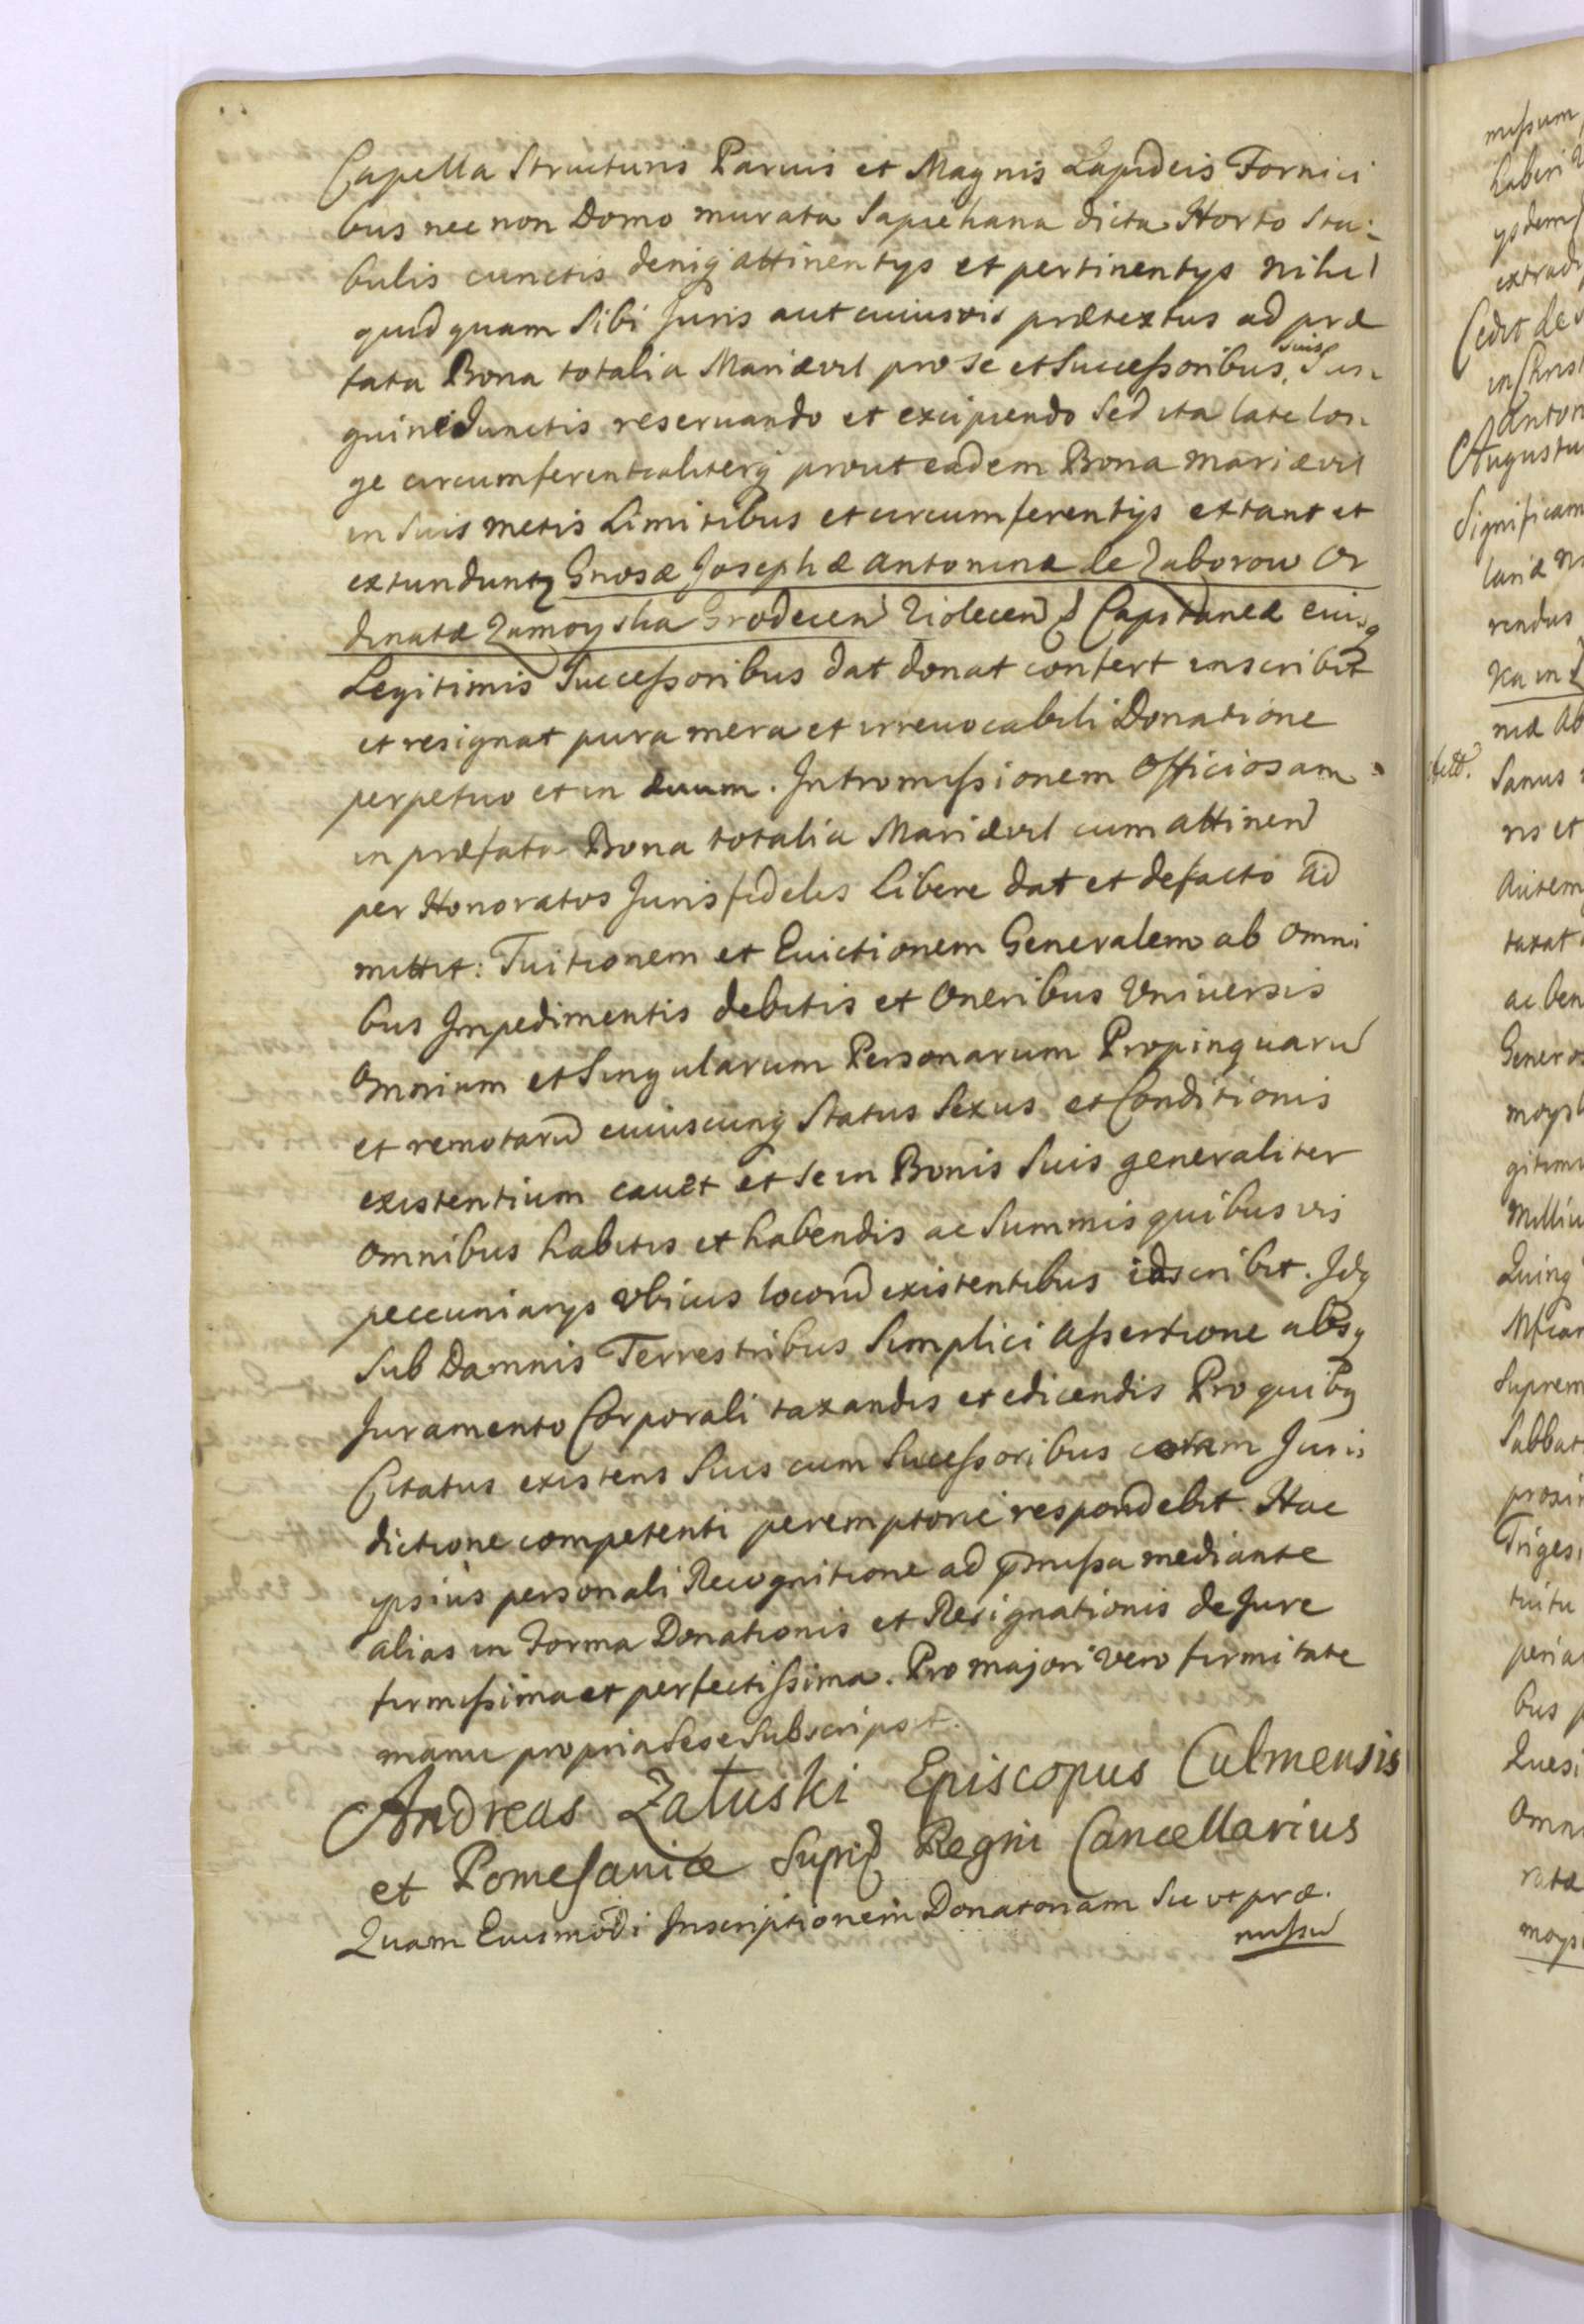 Capella Structuris Paruis et Magnis Lapideis Fornici
bus nec non Domo murata Sapiehana dicta Horto Sta-
bulis cunctis deniq attinentys et pertinentys nihil
quidquam Sibi Juris aut cuiusvis prætextus ad præ
fata Bona totalia Mariævil pro se et Successoribus suis San
guine Junctis reseruando et excipiendo Sed ita late lon
ge circumferentialiterq prout eadem Bona Mariævil
in Suis metis Limitibus et circumferentijs extant et
extunduntq Gnosæ Josephæ Antoninæ de Zaborow Or
dinatæ Zamoyska Grodecen Ziolecen & Capitaneæ eiusq
Legitimis Successoribus dat donat confert inscribit
et resignat pura mera et irreuocabili Donatione
perpetuo et in æuum. Intromissionem Officiosam
in præfata Bona totalia Mariævil cum attinen
per Honoratos Juris fideles Libere dat et de facto ad
mittit: Tuitionem et Euictionem Generalem ab omni
bus Impedimentis debitis et Oneribus Vniuersis
Omnium et Singularum Personarum Propinquaru
et remotaru cuiuscunq Status Sexus et Conditionis
existentium cauet et se in Bonis Suis generaliter
omnibus habitis et habendis ac Summis quibusvis
peccuniarys vbicus locoru existentibus idscribit. Idq
Sub Damnis Terrestribus Simplici Assertione absq
Juramento Corporali taxandis et edicendis Pro quibq
Citatus existens Suis cum Successoribus coram Juris
dictione competenti peremptorie respondebit. Hac
ipsius personali Recognitione ad pmissa mediante
alias in Forma Donationis et Resignationis de Jure
firmissima et perfectissima. Pro majori vero firmitate
manu propria sese Subscripsit.
Andreas Załuski Episcopus Culmensis
et Pomesaniæ Supr Regni Cancellarius
Quam Euismodi Inscriptionem Donatoriam Sic vt præ.
missu
missum
haberi
ysdem
extradi
Cedit de
in Christ
Anton
Augustu
Significam
rendus
Ka in
niæ ab
Sanus
ris et
Autem
taxat
ac ben
Genero
moys
gitimi
Milliu
Quinq
Suprem
Sabbat
proxi
Triges
tuitu
peria
bus p
Quesi
Omni
ratæ
moys